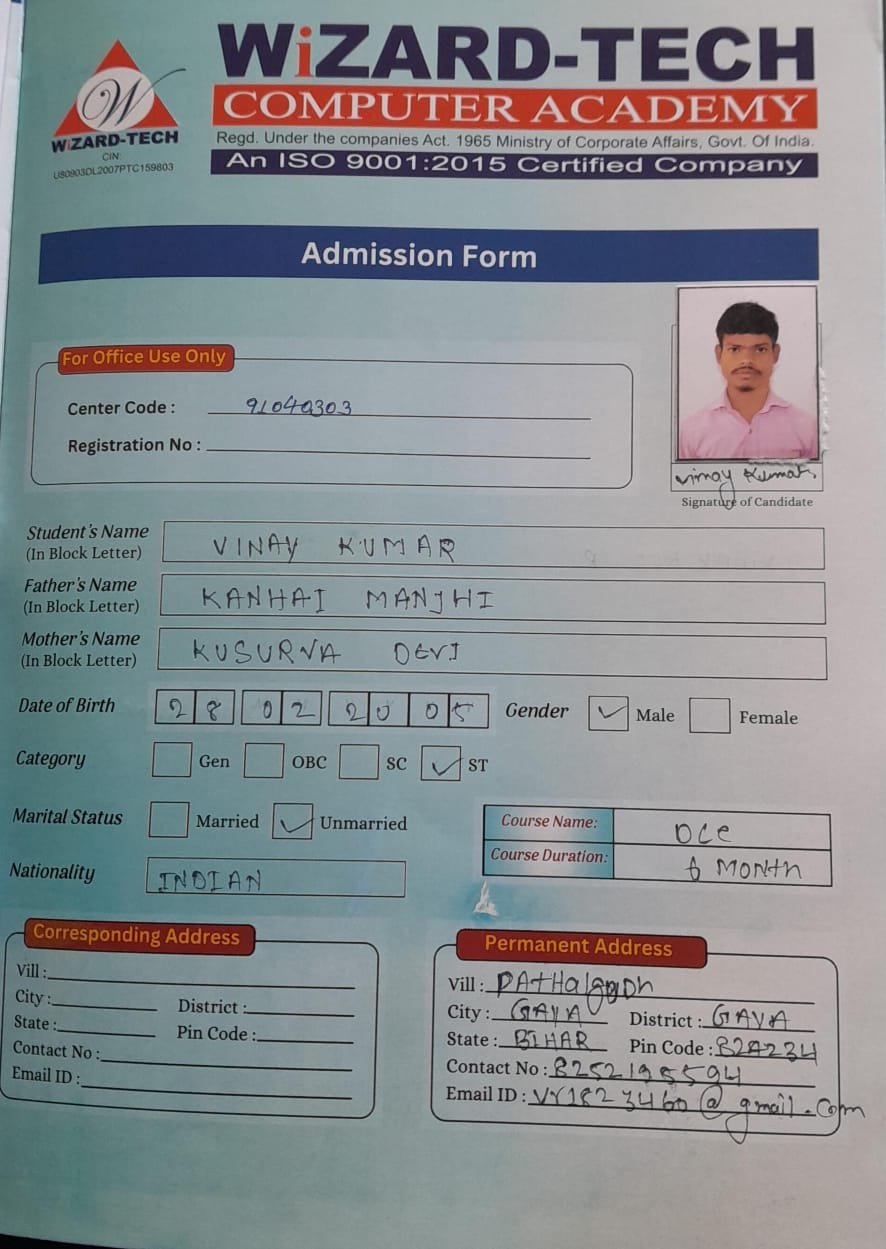 WiZARD-TECH
COMPUTER ACADEMY
Regd. Under the companies Act. 1965 Ministry of Corporate Affairs, Govt. Of India.
An ISO 9001:2015 Certified Company
W
WiZARD-TECH
CIN:
U80903DL2007PTC159803
Admission Form
For Office Use Only
Center Code : 91040303
Registration No :
Vinay Kumar
Signature of Candidate
Student's Name VINAY KUMAR
(In Block Letter)
Father's Name KANHAI MANJHI
(In Block Letter)
Mother's Name KUSURVA DEVI
(In Block Letter)
Date of Birth 28 02 2005 Gender Male Female
Category Gen OBC SC ST
Marital Status Married Unmarried
Course Name: DCE
Course Duration: 6 MONTH
Nationality INDIAN
Corresponding Address
Vill :
City : District :
State : Pin Code :
Contact No :
Email ID :
Permanent Address
Vill :
City : GAYA District : GAYA
State : BIHAR Pin Code : 824234
Contact No : 8252195594
Email ID : VY1823460@gmail.com